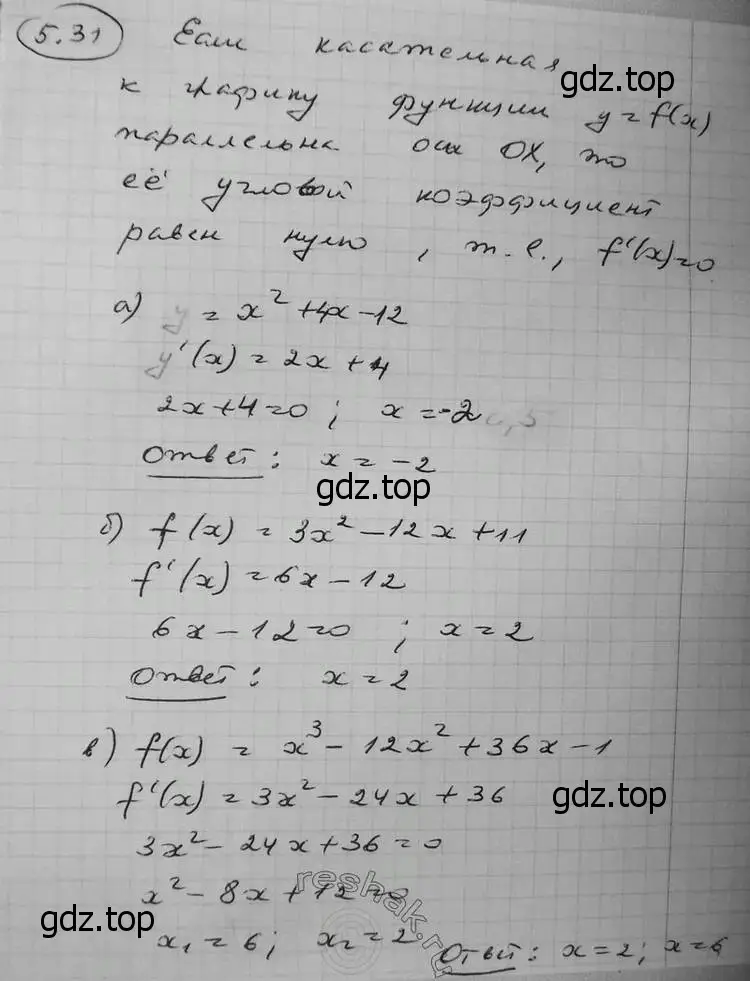 5.31 Если касательная
gdz.top
к графику функции y = f(x)
параллельна оси OX, то
её угловой коэффициент
равен нулю, т.е., f'(x)=0
а) y = x² + 4x - 12
y'(x) = 2x + 4
2x+4=0 ; x = -2
Ответ: x = -2
gdz.top
б) f(x) = 3x² - 12x + 11
f'(x) = 6x - 12
6x - 12=0 ; x = 2
Ответ: x = 2
в) f(x) = x³ - 12x² + 36x - 1
f'(x) = 3x² - 24x + 36
gdz.top
3x² - 24x + 36 = 0
x² - 8x + 12 = 0
reshak.ru
gdz.top
x₁ = 6; x₂ = 2 Ответ: x = 2; x = 6
gdz.top